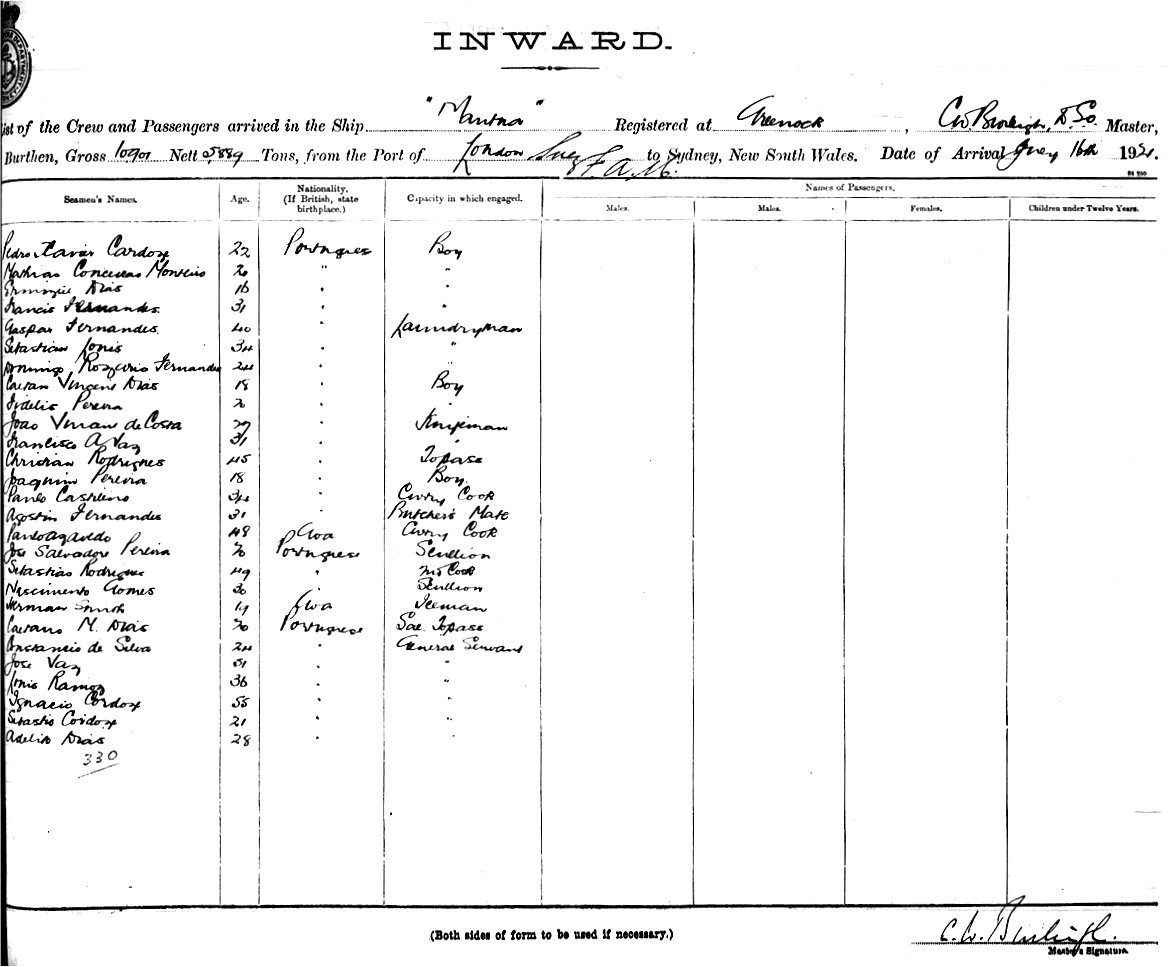 INWARD.
List of the Crew and Passengers arrived in the Ship "Mantua" Registered at Greenock, C.W. Burleigh, D.S.O. Master,
Burthen, Gross 10901 Nett 5889 Tons, from the Port of London to Sydney, New South Wales. Date of Arrival 16th 192
Seamen's Names. Age. Nationality. (If British, state birthplace.) Capacity in which engaged. Names of Passengers.
Males. Males. Females. Children under Twelve Years.
Pedro Xavier Cardoz 22 Portugues Boy
Mathias Conceicao Monteiro 20 " "
Dias 16 " "
Francis Fernandes. 31 " "
Gaspar Fernandes. 40 " Laundryman
Sebastian 34 " "
Domingo Rozario Fernandes 24 " "
Caetan Vincent Dias 18 " Boy
Fidelis Pereira 20 " "
Joao de Costa 29 " Knifeman
Francisco A Vaz 31 " "
Christian Rodrigues 45 " Topass
Joaquim Pereira 18 " Boy.
Paulo Castelino 34 " Curry Cook
Agostin Fernandes 31 " Butcher's Mate
48 Goa Curry Cook
Jose Salvadore Pereira 20 Portuguese Scullion
Sebastiao Rodrigues 49 " Cook
Nascimento Gomes 30 " Scullion
Herman Smith 19 Goa Iceman
Caetano M. Dias 30 Portuguese Topass
Constancio de Silva 24 " General Servant
Jose Vaz 31 " "
Ramoz 36 " "
Ignacio Cordoz 55 " "
Sebastio Cordoz 21 " "
Dias 28 " "
330
(Both sides of form to be used if necessary.)
C.W. Burleigh.
Master's Signature.